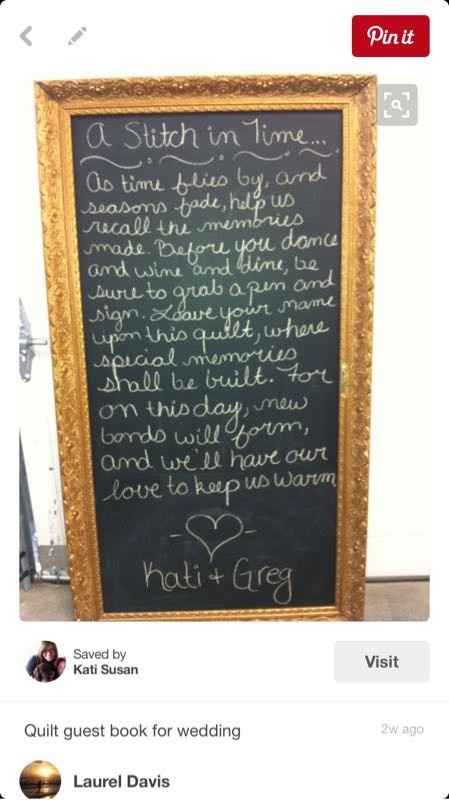 Pin it
A Stitch in Time...
As time flies by, and
seasons fade, help us
recall the memories
made. Before you dance
and wine and dine, be
sure to grab a pen and
sign. Leave your name
upon this quilt, where
special memories
shall be built. For
on this day, new
bonds will form,
and we'll have our
love to keep us warm
Kati + Greg
Saved by
Kati Susan
Visit
Quilt guest book for wedding
2w ago
Laurel Davis